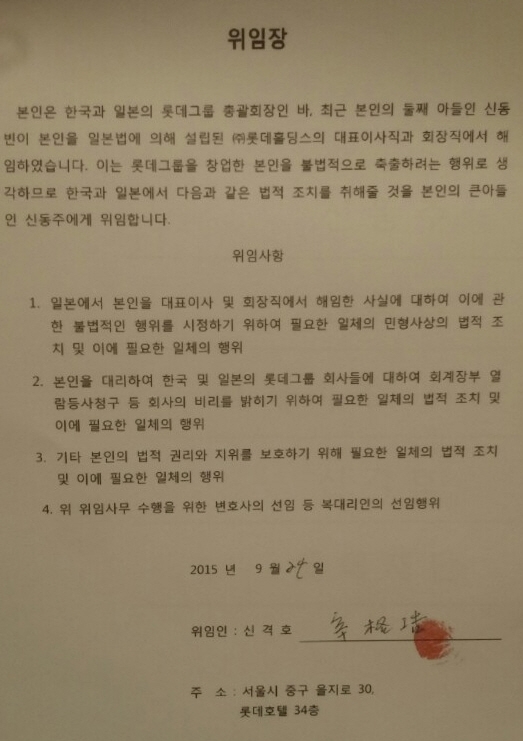 위임장
본인은 한국과 일본의 롯데그룹 총괄회장인 바, 최근 본인의 둘째 아들인 신동
빈이 본인을 일본법에 의해 설립된 ㈜롯데홀딩스의 대표이사직과 회장직에서 해
임하였습니다. 이는 롯데그룹을 창업한 본인을 불법적으로 축출하려는 행위로 생
각하므로 한국과 일본에서 다음과 같은 법적 조치를 취해줄 것을 본인의 큰아들
인 신동주에게 위임합니다.
위임사항
1. 일본에서 본인을 대표이사 및 회장직에서 해임한 사실에 대하여 이에 관
한 불법적인 행위를 시정하기 위하여 필요한 일체의 민형사상의 법적 조
치 및 이에 필요한 일체의 행위
2. 본인을 대리하여 한국 및 일본의 롯데그룹 회사들에 대하여 회계장부 열
람등사청구 등 회사의 비리를 밝히기 위하여 필요한 일체의 법적 조치 및
이에 필요한 일체의 행위
3. 기타 본인의 법적 권리와 지위를 보호하기 위해 필요한 일체의 법적 조치
및 이에 필요한 일체의 행위
4. 위 위임사무 수행을 위한 변호사의 선임 등 복대리인의 선임행위
2015 년 9 월 24 일
위임인 : 신 격 호 辛格浩
주 소 : 서울시 중구 을지로 30,
롯데호텔 34층